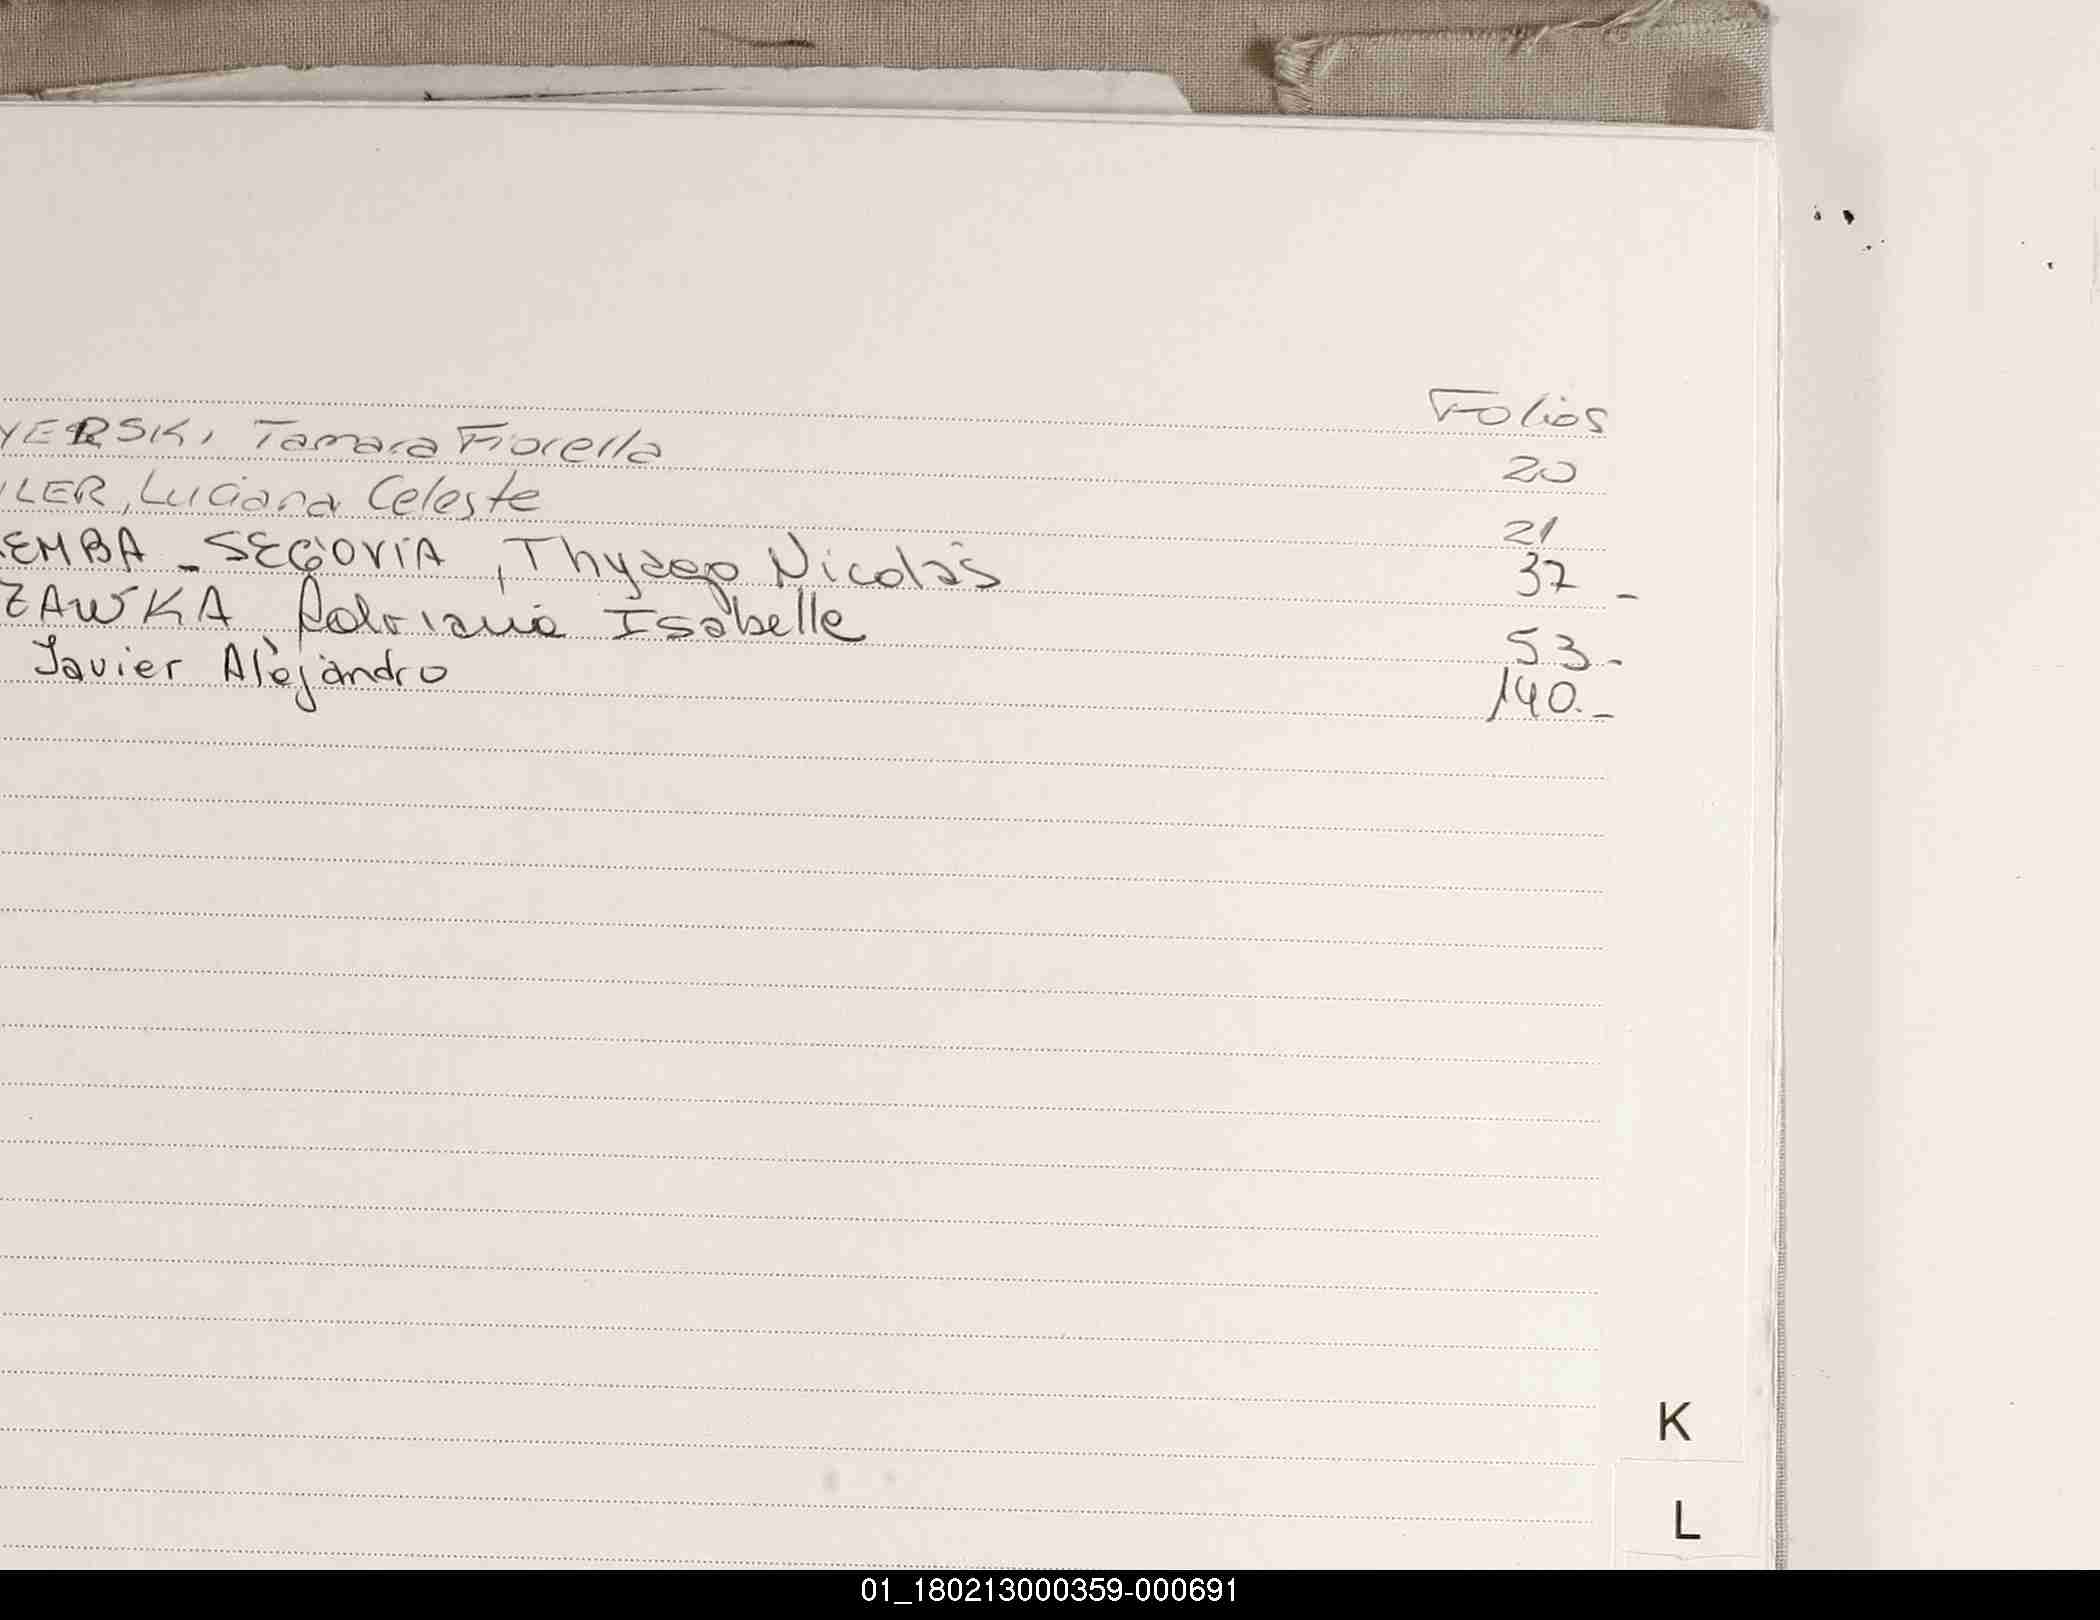 Folios
YERSKI, Tamara Fiorella 20
LER, Luciana Celeste 21
EMBA - SEGOVIA, Thyago Nicolás 37 -
ZAWSKA Isabelle 53.-
Javier Alejandro 140.-
K
L
01_180213000359-000691